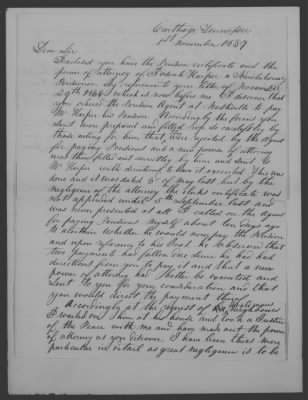 Carthage Tennessee
1st November 1839
Dear Sir
Enclosed you have the Pension certificate and the
power of attorney of Josiah Harper a Revolutionary
Pensioner. By reference to your letter of November
29th which is now before me I discover that
you ordered the Pension Agent at Nashville to pay
Mr Harper his Pension. Accordingly the forms you
sent were prepared and filled up so carefully by
those acting for him that were rejected by the Agent
for paying Pensions and a new power of attorney
was then filled out correctly by him and sent to
Mr Harper with directions to have it executed. This was
done and it was dated 8 of May last but by the
negligence of the attorney the clerks certificate was
not appened until 5th September last and
was never presented at all. I called on the Agent
for paying Pensions myself about ten days ago
to ascertain whether he would now pay the Pension
and upon reference to his Book he observed that
two payments had fallen due since he had had
directions from you to pay it and that a new
power of attorney had better be executed and
sent to you for your consideration and that
you would direct the payment
Accordingly at the request of his neighbours
I waited on him at his house and took a Justice
of the Peace with me and have made out the power
of attorney as you discover. I have been thus more
particular in detail as great negligence is to be